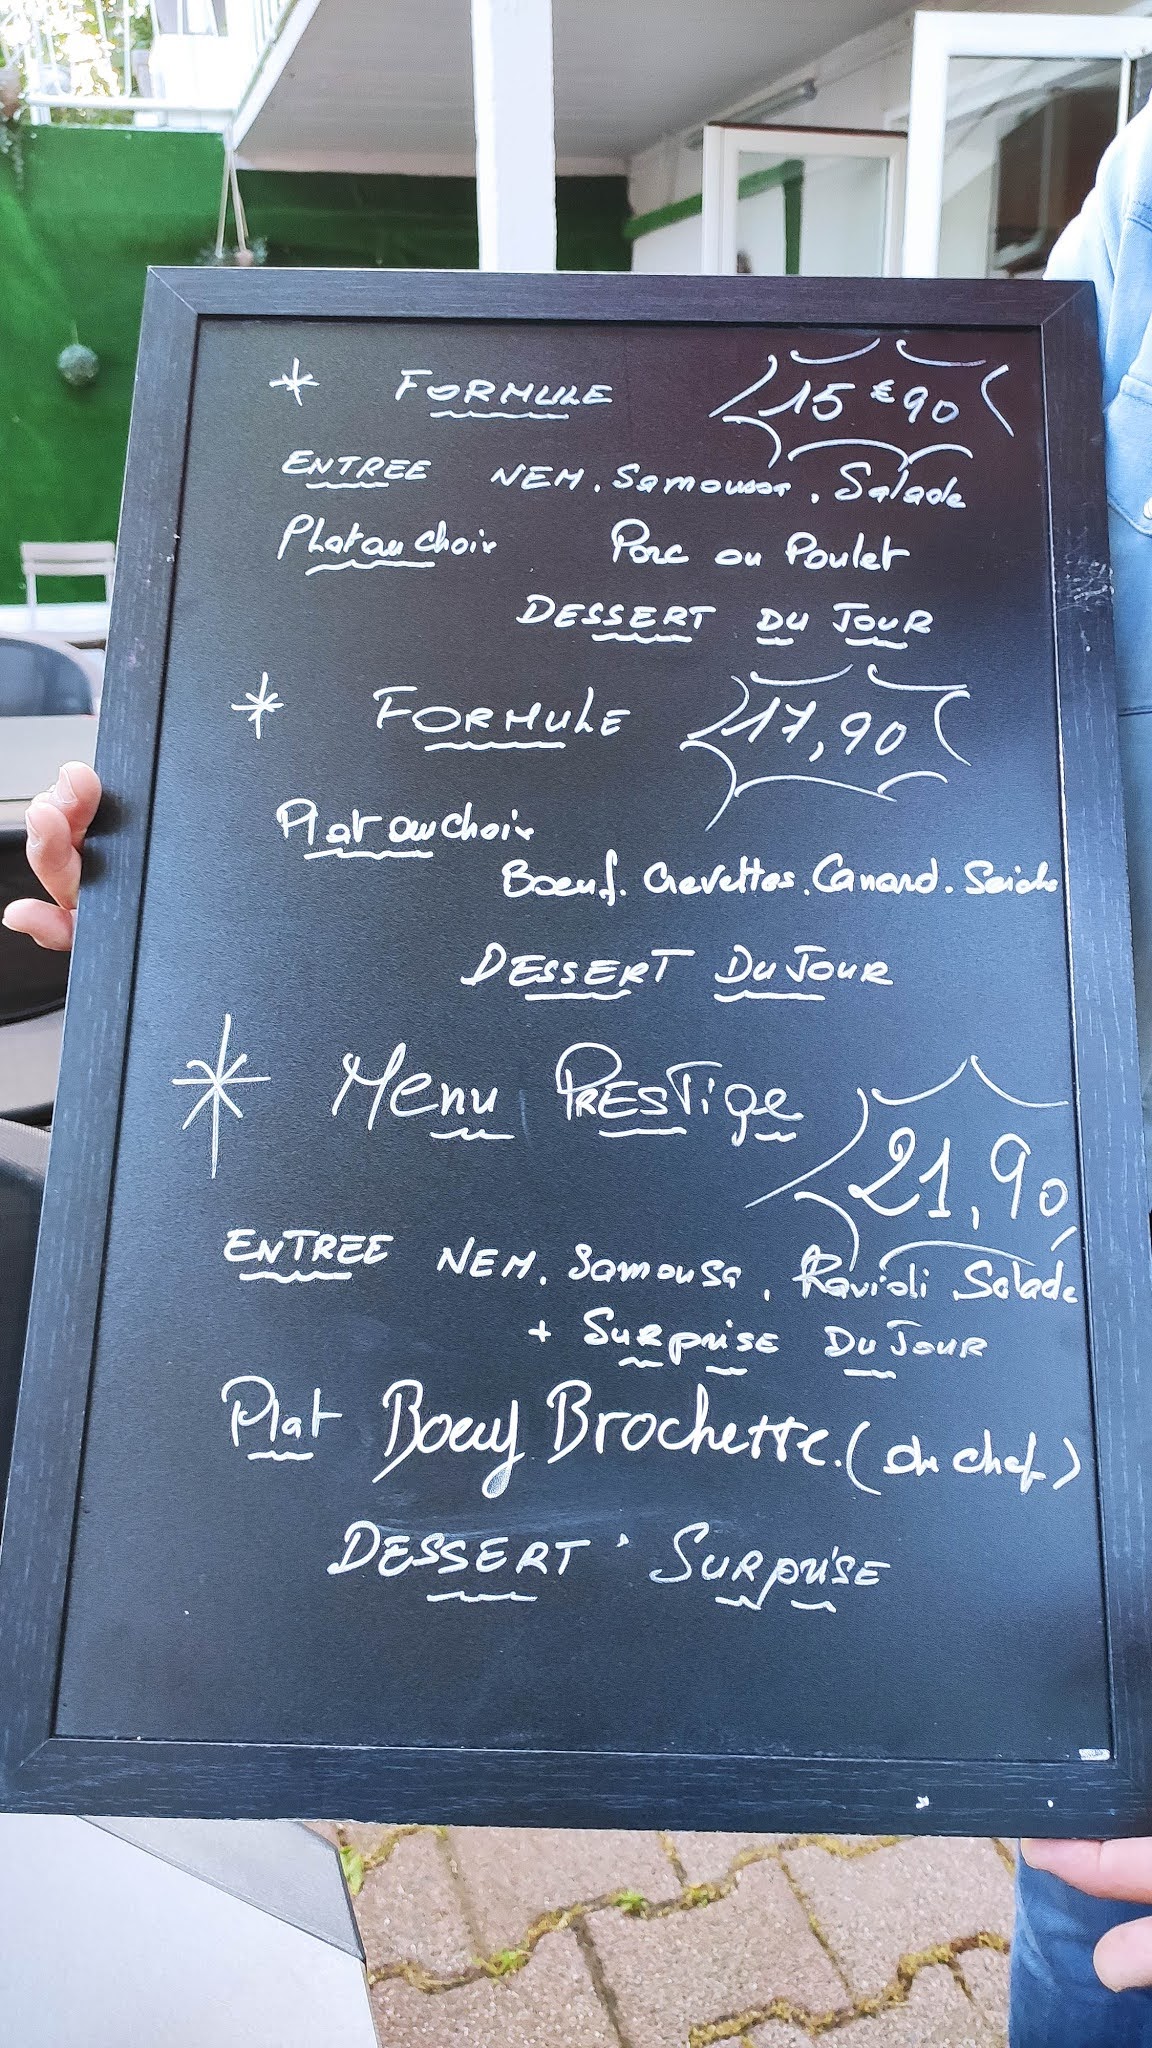 * FORMULE 15€90
ENTREE NEM. Samoussa. Salade
Plat au choix Porc ou Poulet
DESSERT DU JOUR
* FORMULE 17,90
Plat au choix
Boeuf. Crevettes. Canard. Seiche
DESSERT DU JOUR
* Menu PRESTige 21,90
ENTREE NEM. Samousa, Ravioli Salade
+ SURPRISE DU JOUR
Plat Boeuf Brochette. (du chef)
DESSERT SURPRISE